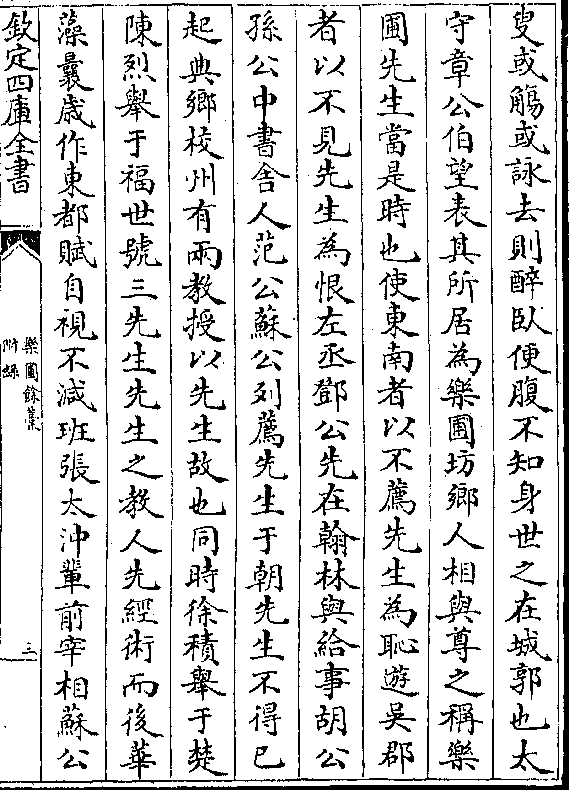 叟或觴或詠去則醉臥便腹不知身世之在城郭也太
守章公伯望表其所居為樂圃坊鄉人相與尊之稱樂
圃先生當是時也使東南者以不薦先生為恥遊吳郡
者以不見先生為恨左丞鄧公先在翰林與給事胡公
孫公中書舍人范公蘇公列薦先生于朝先生不得已
起典鄉校州有兩教授以先生故也同時徐積舉于楚
陳烈舉于福世號三先生先生之教人先經術而後華
藻曩歲作東都賦自視不減班張太沖輩前宰相蘇公
欽定四庫全書
樂圃餘藁
附錄
三